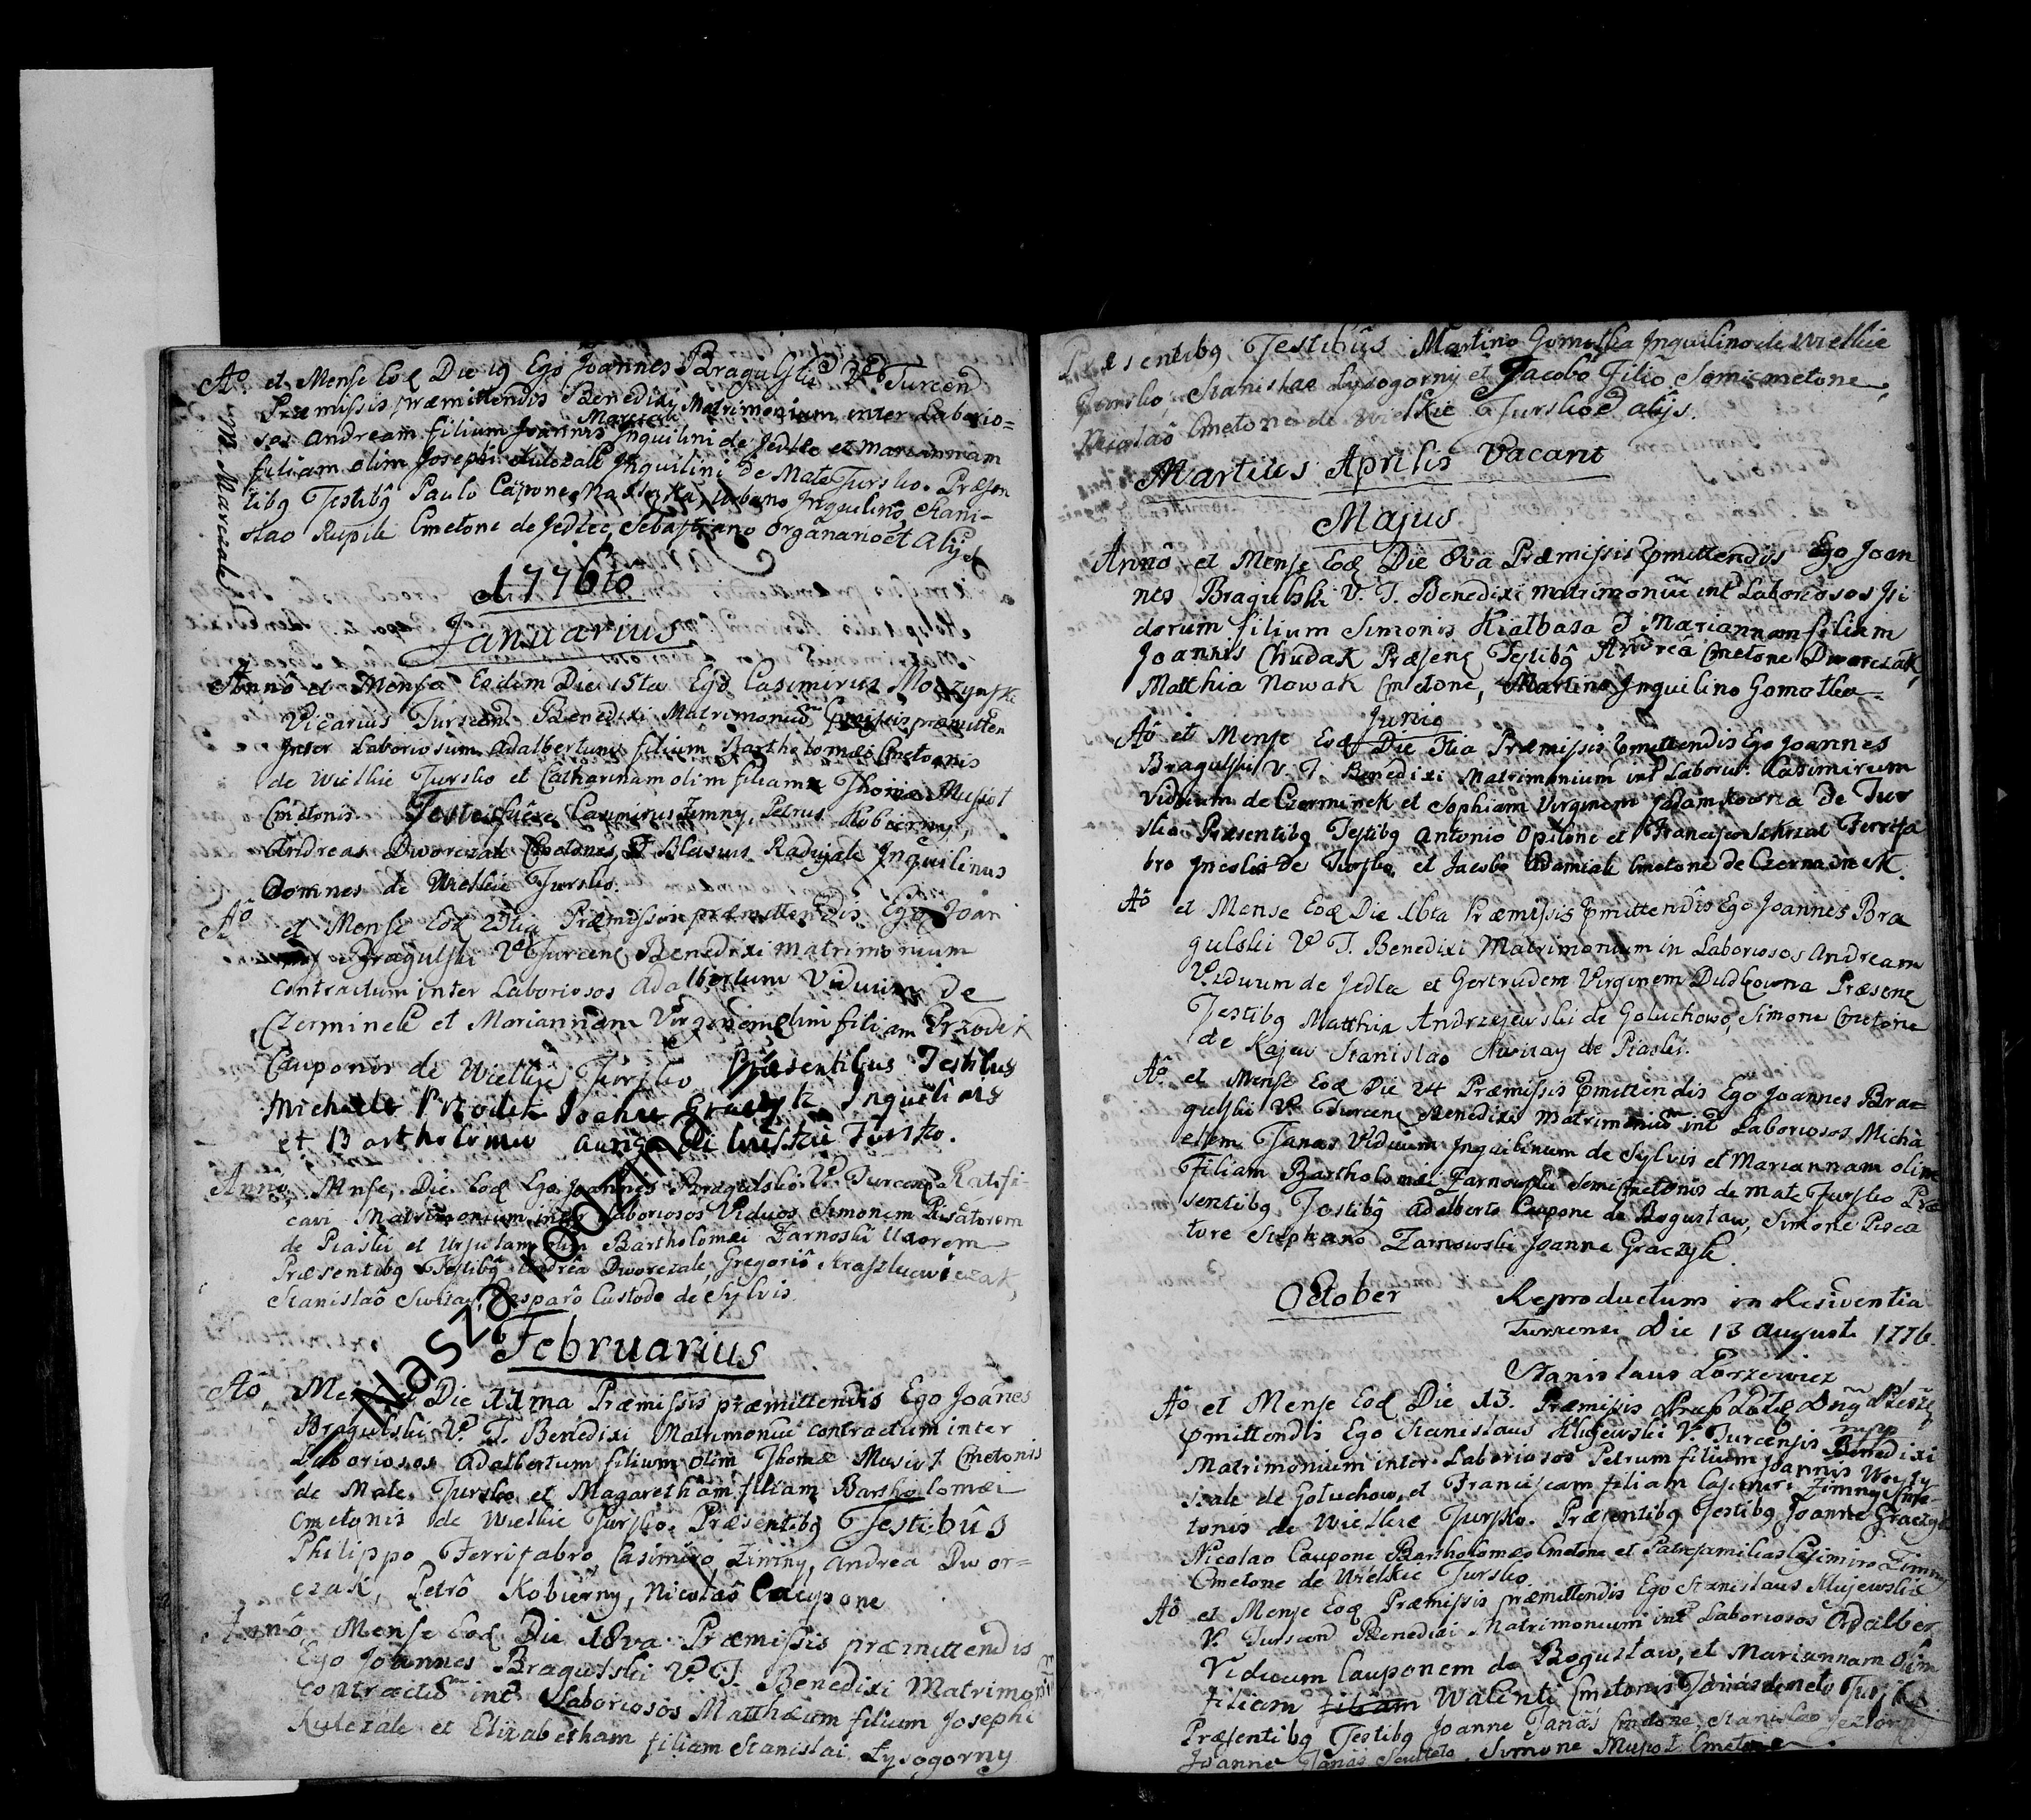 Aô et Mense Eod Die 19 Ego Joannes Bragulski Turcen
Præmissis præmittendis Benedixi Matrimonium inter Laborio=
sos Andream filium Joannis Marczak Inquilini de Jedlec et Mariannam
filiam olim Josephi Kulczak Inquilini de Małe Tursko. Præsen
tibq Testibq Paulo Caupone, Urbano Inquilino, Stani-
slao Rupik Cmetone de Jedlec, Sebastiano Organario et Alijs
M. Marczak
1776to
Januarius
Anno et Mense Eodem Die 15ta Ego Casimirus Moczynski
Vicarius Turscen Benedixi Matrimonium præmissis præmitten
Inter Laboriosum Adalbertum filium Bartholomæi Cmetonis
de Wielkie Tursko et Catharinam olim filiam Thomæ Musiot
Cmetonis. Testes fuere Casimirus Zimny, Petrus Kobierny,
Andreas Dworczak Cmetones, et Blasius Radujak Inquilinus
omnes de Wielkie Tursko.
Aô et Mense Eod 23tia Præmissis præmittendis Ego Joan
nes Bragulski V Turcen Benedixi matrimonium
Contractum inter Laboriosos Adalbertum Viduum de
Czerminek et Mariannam Virginem olim filiam Przodek
Cauponis de Wielkie Tursko Præsentibus Testibus
Michaele Przodek Joanne Graczyk Inquilinis
et Bartholomeo auriga de Wielkie Tursko.
Anno, Mense, Die Eod Ego Joannes Bragulski V. Turcen Ratifi-
cavi Matrimonium inter Laboriosos Viduos Simonem Piscatorem
de Piaski et Ursulam olim Bartholomæi Zarnoski Uxorem
Præsentibq Testibq Andrea Dworczak, Gregorio Kraszkiewiczak,
Stanislaô Switay, Gasparô Custode de Sylvis.
Februarius
Aô, Mense Die 11ma Præmissis præmittendis Ego Joannes
Bragulski V. T. Benedixi Matrimoniū contractum inter
Laboriosos Adalbertum filium olim Thomæ Musioł Cmetonis
de Małe Tursko et Magaretham filiam Bartholomæi
Cmetonis de Wielkie Tursko. Præsentibq Testibûs
Philippo Ferrifabro, Casimiro Zimny, Andrea Dwor=
czak, Petrô Kobierny, Nicolaô Caupone
Anno, Mense Eod Die 18va Præmissis præmittendis
Ego Joannes Bragulski V. T. Benedixi Matrimo
contractū int Laboriosos Matthæum filium Josephi
Kulczak et Elizabetham filiam Stanislai Łysogorny
Præsentibq Testibus Martino Gomołka Inquilino de Wielkie
Tursko, Stanislao Łysogorny et Jacobô Filiô Semicmetone,
Nicolaô Cmetone de Wielkie Tursko et alijs.
Martius Aprilis Vacant
Majus
Annô et Mense Eod Die 8va Præmissis pmittendis Ego Joan
nes Bragulski V. T. Benedixi matrimoniū int Laboriosos Isi
dorum filium Simonis Kiałbasa et Mariannam filiam
Joannis Chudak Præsen Testibq Andreâ Cmetone Dworczak,
Matthia Nowak Cmetone, Martino Inquilino Gomołka
Junio
Aô et Mense Eod Die 3tia Præmissis pmittendis Ego Joannes
Bragulski V. T. Benedixi Matrimonium int Laborios Casimirum
Viduum de Czerminek et Sophiam Virginem Adamkowna de Tur
sko Præsentibq Testibq Antonio Opilone et Francisco Ferrifa
bro Incolis de Tursko, et Jacobo Adamiak Cmetone de Czerminek.
Aô et Mense Eod Die 16ta Præmissis pmittendis Ego Joannes Bra
gulski V T. Benedixi Matrimonium in Laboriosos Andream
Viduum de Jedlec et Gertrudem Virginem Dudkowna Præsen
Testibq Matthia Andrzejewski de Goluchowo, Simone Cmetone
de Kajew Stanislao Switay de Piaski.
Aô et Mense Eod Die 24 Præmissis pmittendis Ego Joannes Bra=
gulski V. Turcen Benedixi Matrimoniū int Laboriosos Micha
elem Janas Viduum Inquilinum de Sylvis et Mariannam olim
Filiam Bartholomæi Zarnowski Semicmetonis de Małe Tursko Præ
sentibq Testibq Adalberto Caupone de Bogusław, Simone Pisca
tore Stephano Zarnowski Joanne Graczyk.
October
Reproductum in Residentia
Turscensi Die 13 Augusti 1776
Stanislaus Porzewicz
Aô et Mense Eod Die 13. Præmissis
pmittendis Ego Stanislaus Klujewski V. Turcensis Benedixi
Matrimonium inter Laboriosos Petrum filium Joannis
de Gołuchow, et Franciscam filiam Casimiri Zimny Cme-
tonis de Wielkie Tursko. Præsentibq Testibq Joanne Graczyk
Nicolao Caupone Bartholomeo Cmetone et Patrefamilias Casimiro Zimny
Cmetone de Wielkie Tursko.
Aô et Mense Eod Præmissis præmittendis Ego Stanislaus Klujewski
V. Turscen Benedixi Matrimonium int Laboriosos Adalber
Viduum Cauponem de Bogusław, et Mariannam olim
filiam filiam Walenti Cmetonis Janas de Małe Tursk
Præsentibq Testibq Joanne Janas Cmetone, Stanislao
Joanne Janas Sculteto, Simone Musioł Cmetone.
Nasza rodzina